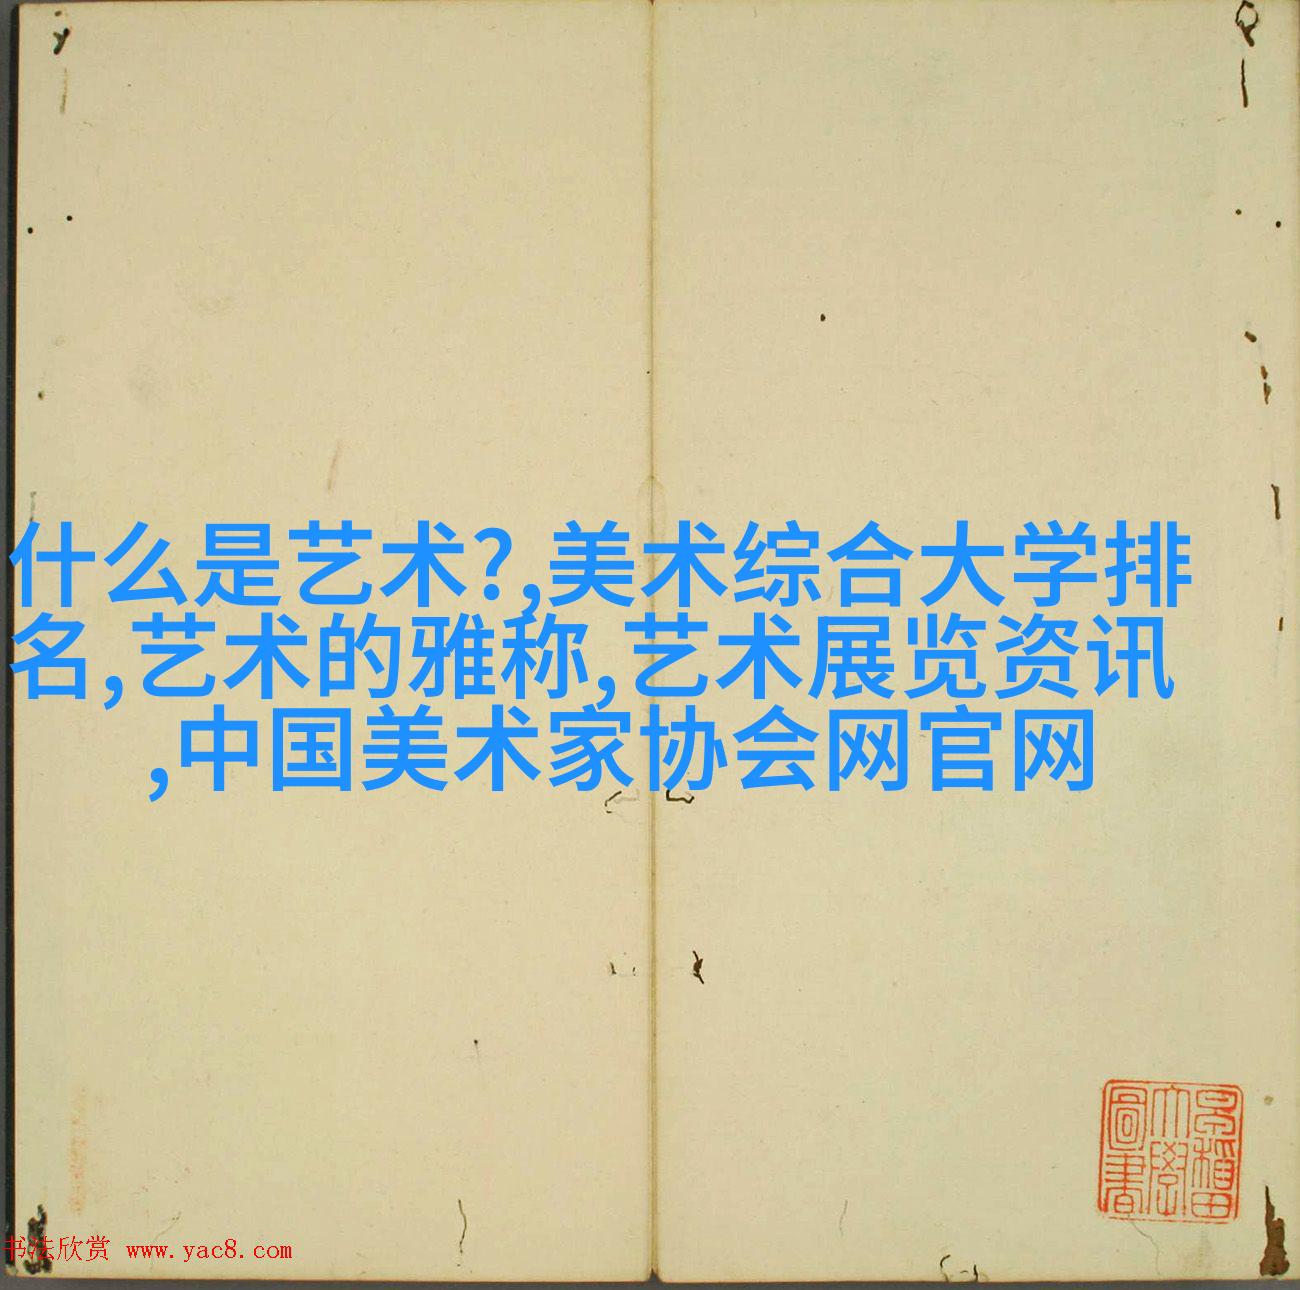 什么是艺术?,美术综合大学排
名,艺术的雅称,艺术展览资讯
,中国美术家协会网官网
早稲田
大學
圖書
书法欣赏 www.yac8.com